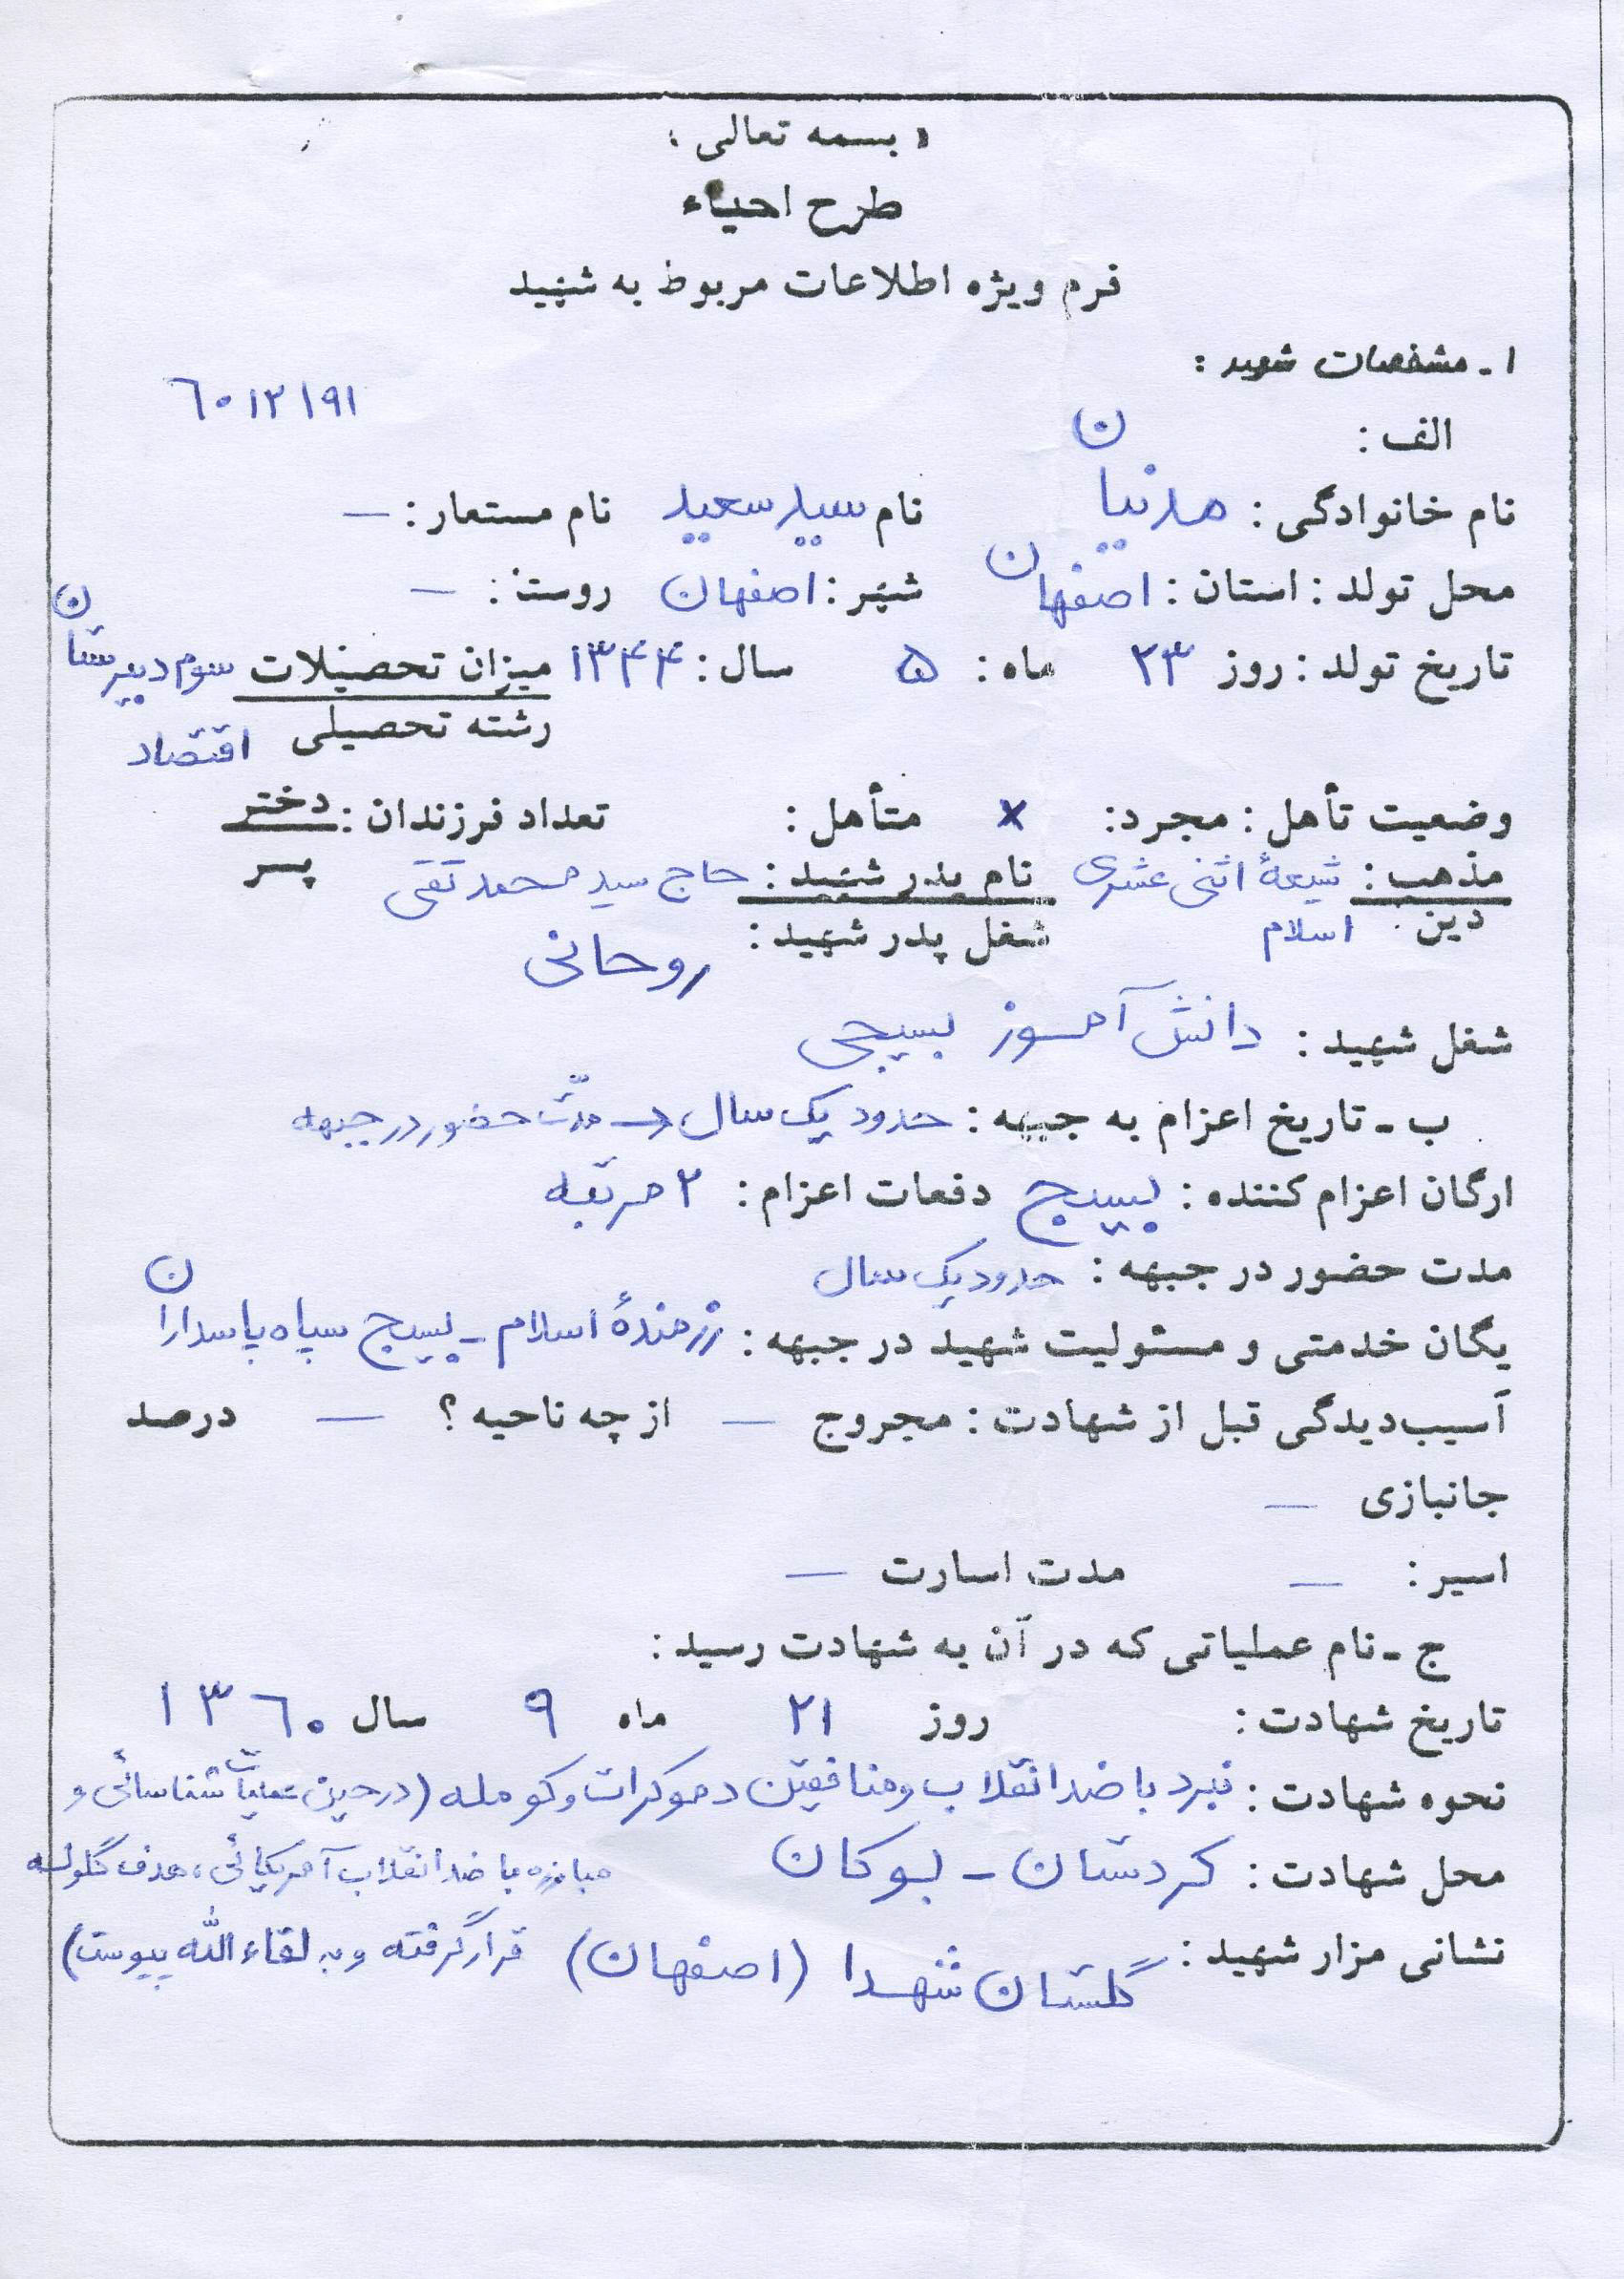 « بسمه تعالی »
طرح احیاء
فرم ویژه اطلاعات مربوط به شهید
۱ - مشخصات شهید :
۶۰۱۲۱۹۱
الف :
نام خانوادگی : مدنیان نام سید سعید نام مستعار : —
محل تولد : استان : اصفهان شهر : اصفهان روستا : —
تاریخ تولد : روز ۲۳ ماه : ۵ سال : ۱۳۴۴ میزان تحصیلات سوم دبیرستان
رشته تحصیلی اقتصاد
وضعیت تأهل : مجرد : x متأهل : تعداد فرزندان : دختر
پسر
مذهب : شیعهٔ اثنی عشری نام پدر شهید : حاج سید محمد تقی
دین : اسلام شغل پدر شهید : روحانی
شغل شهید : دانش آموز بسیجی
ب - تاریخ اعزام به جبهه : حدود یک سال → مدّت حضور در جبهه
ارگان اعزام کننده : بسیج دفعات اعزام : ۲ مرتبه
مدت حضور در جبهه : حدود یک سال
یگان خدمتی و مسئولیت شهید در جبهه : رزمندهٔ اسلام - بسیج سپاه پاسداران
آسیب‌دیدگی قبل از شهادت : مجروح — از چه ناحیه ؟ — درصد
جانبازی —
اسیر : — مدت اسارت —
ج - نام عملیاتی که در آن به شهادت رسید :
تاریخ شهادت : روز ۲۱ ماه ۹ سال ۱۳۶۰
نحوه شهادت : نبرد با ضد انقلاب و منافقین دموکرات و کومله (در حین عملیات شناسائی و
مبارزه با ضد انقلاب آمریکائی، هدف گلوله
قرار گرفته و به لقاء الله پیوست)
محل شهادت : کردستان - بوکان
نشانی مزار شهید : گلستان شهدا (اصفهان)